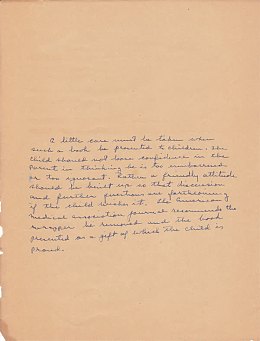 A little care must be taken when
such a book be presented to children. The
child should not loose confidence in the
parent in thinking he is too embarrassed
or too ignorant. Rather a friendly attitude
should be built up so that discussion
and further questions are forthcoming
if the child wishes it. The American
medical association journal recommends the
wrapper be removed and the book
presented as a gift of which the child is
proud.